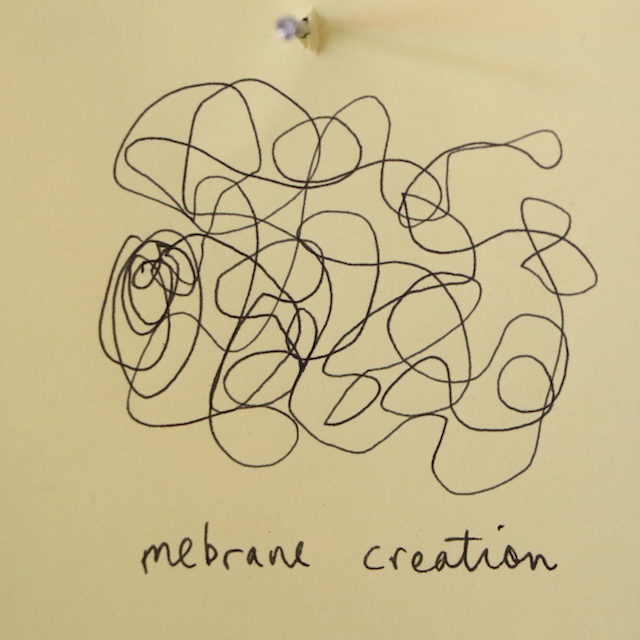 mebrane creation